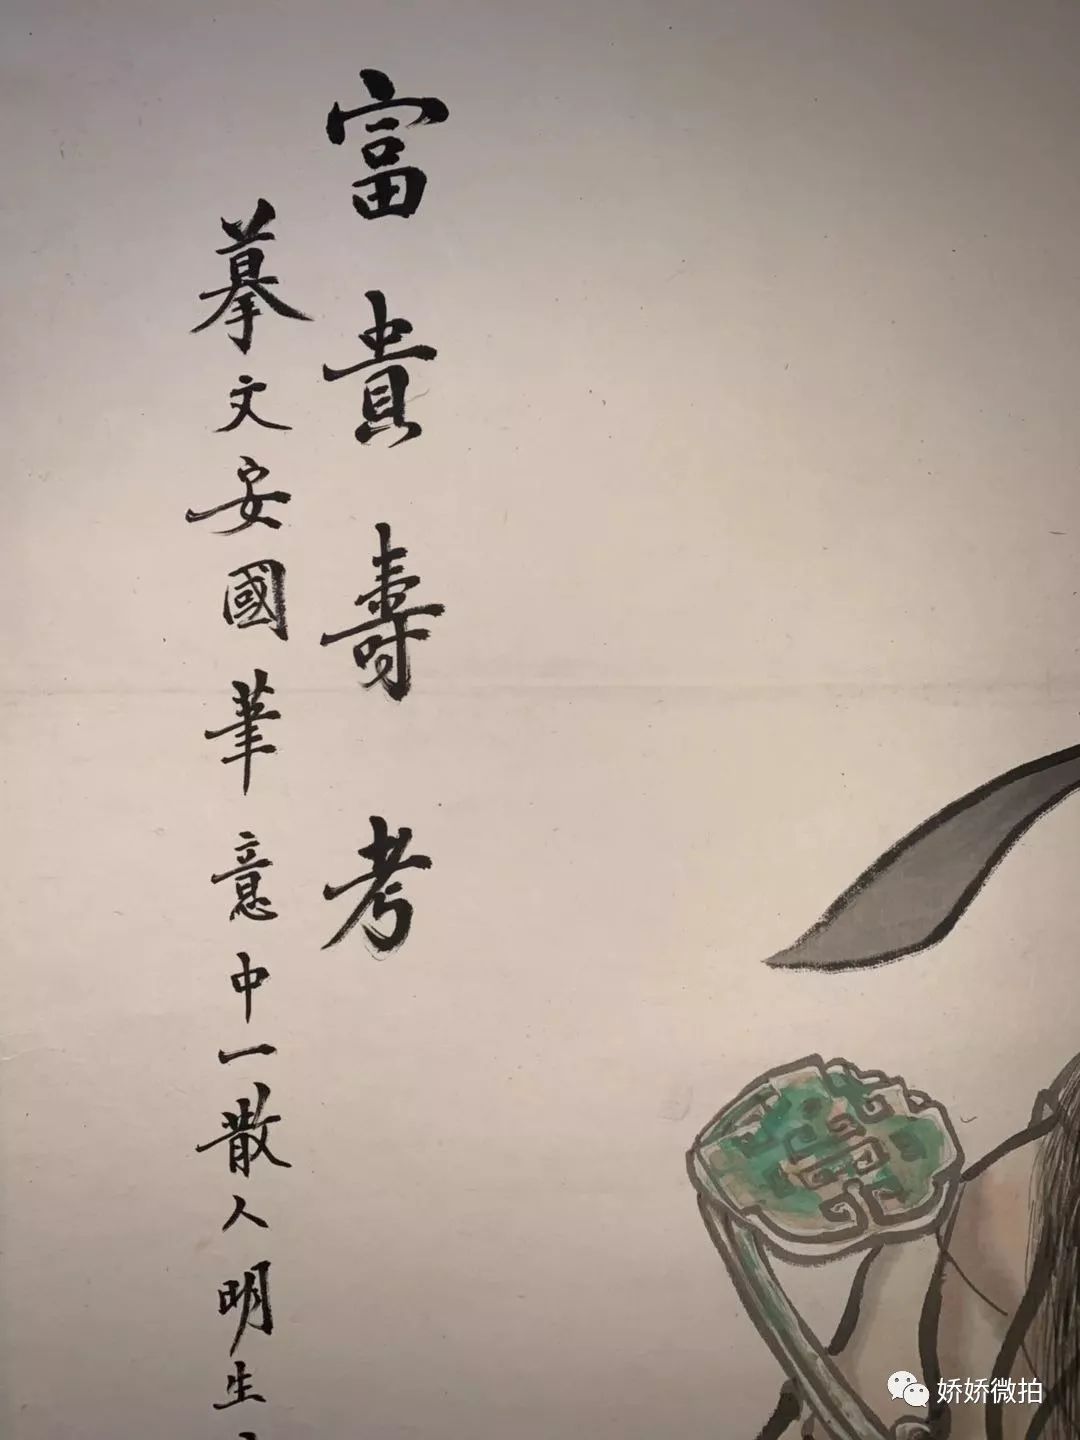 富貴壽考
摹文安國筆意中一散人明生
娇娇微拍